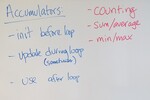 Accumulators:
- init before loop
- update during loop
(sometimes)
- use after loop
- counting
- sum/average
- min/max